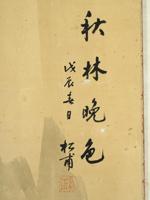 秋林晚色
戊辰春日
松甫